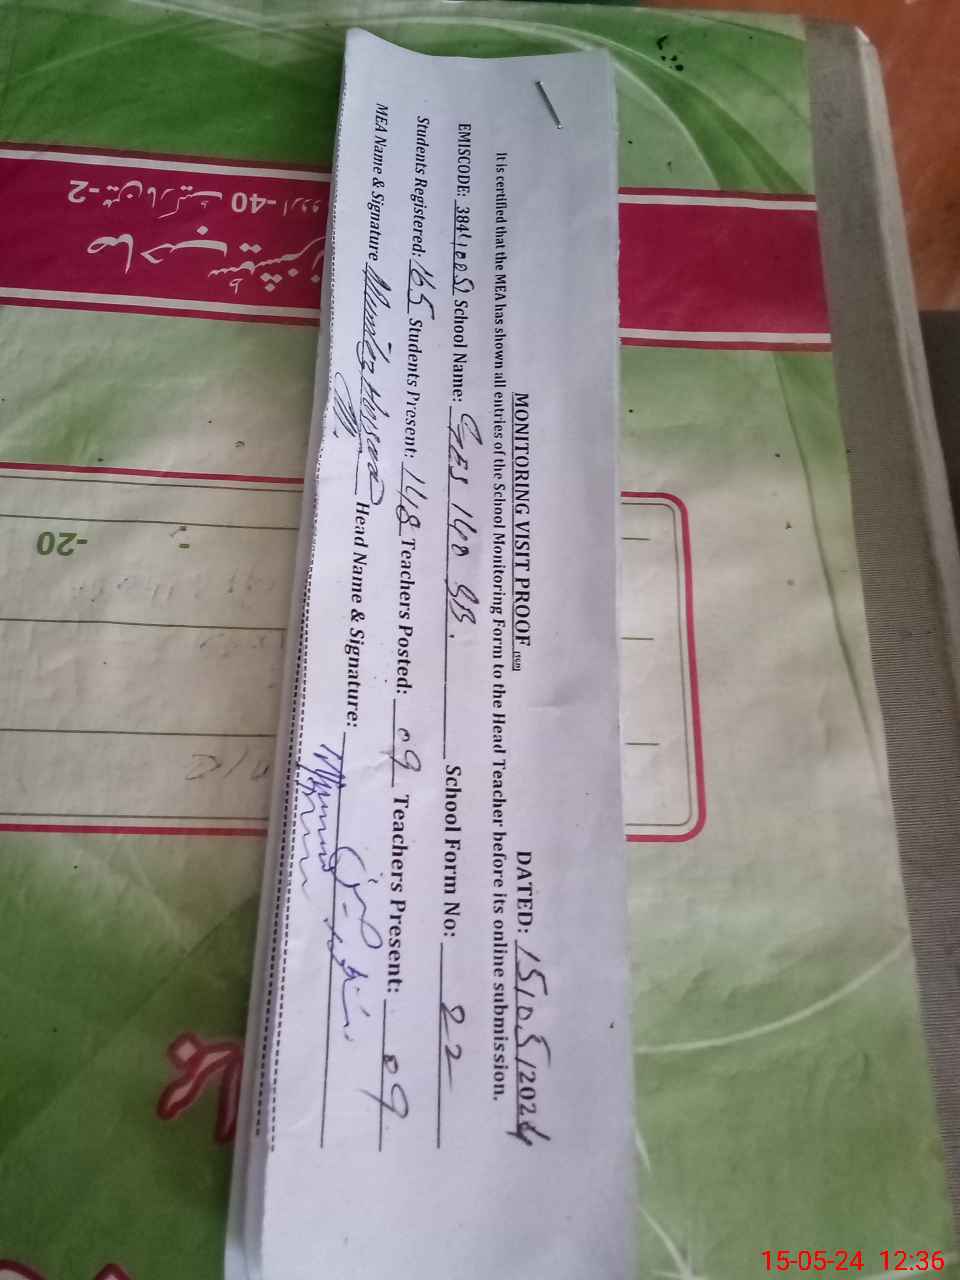 MONITORING VISIT PROOF (SGD) DATED: 15/05/2024
It is certified that the MEA has shown all entries of the School Monitoring Form to the Head Teacher before its online submission.
EMISCODE: 38410051 School Name: GES 140 SB. School Form No: 22
Students Registered: 165 Students Present: 148 Teachers Posted: 09 Teachers Present: 09
MEA Name & Signature Head Name & Signature:
40-
-2
-20
15-05-24 12:36